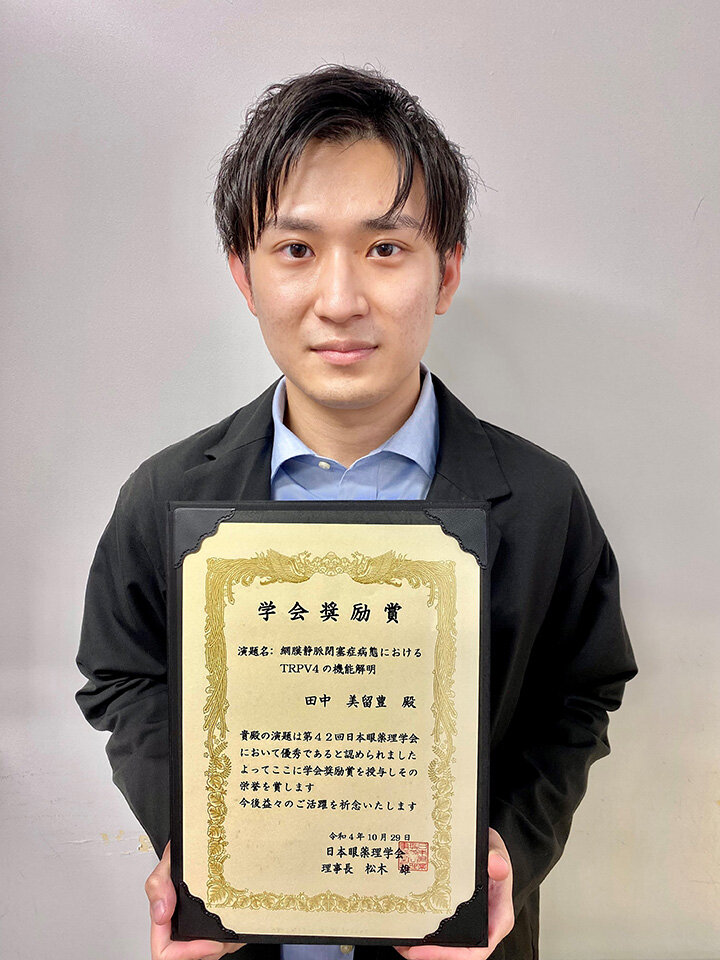 学会奨励賞
演題名: 網膜静脈閉塞症病態における
TRPV4の機能解明
田中 美留豊 殿
貴殿の演題は第42回日本眼薬理学会
において優秀であると認められました
よってここに学会奨励賞を授与しその
栄誉を賞します
今後益々のご活躍を祈念いたします
令和4年10月29日
日本眼薬理学会
理事長 松木 雄